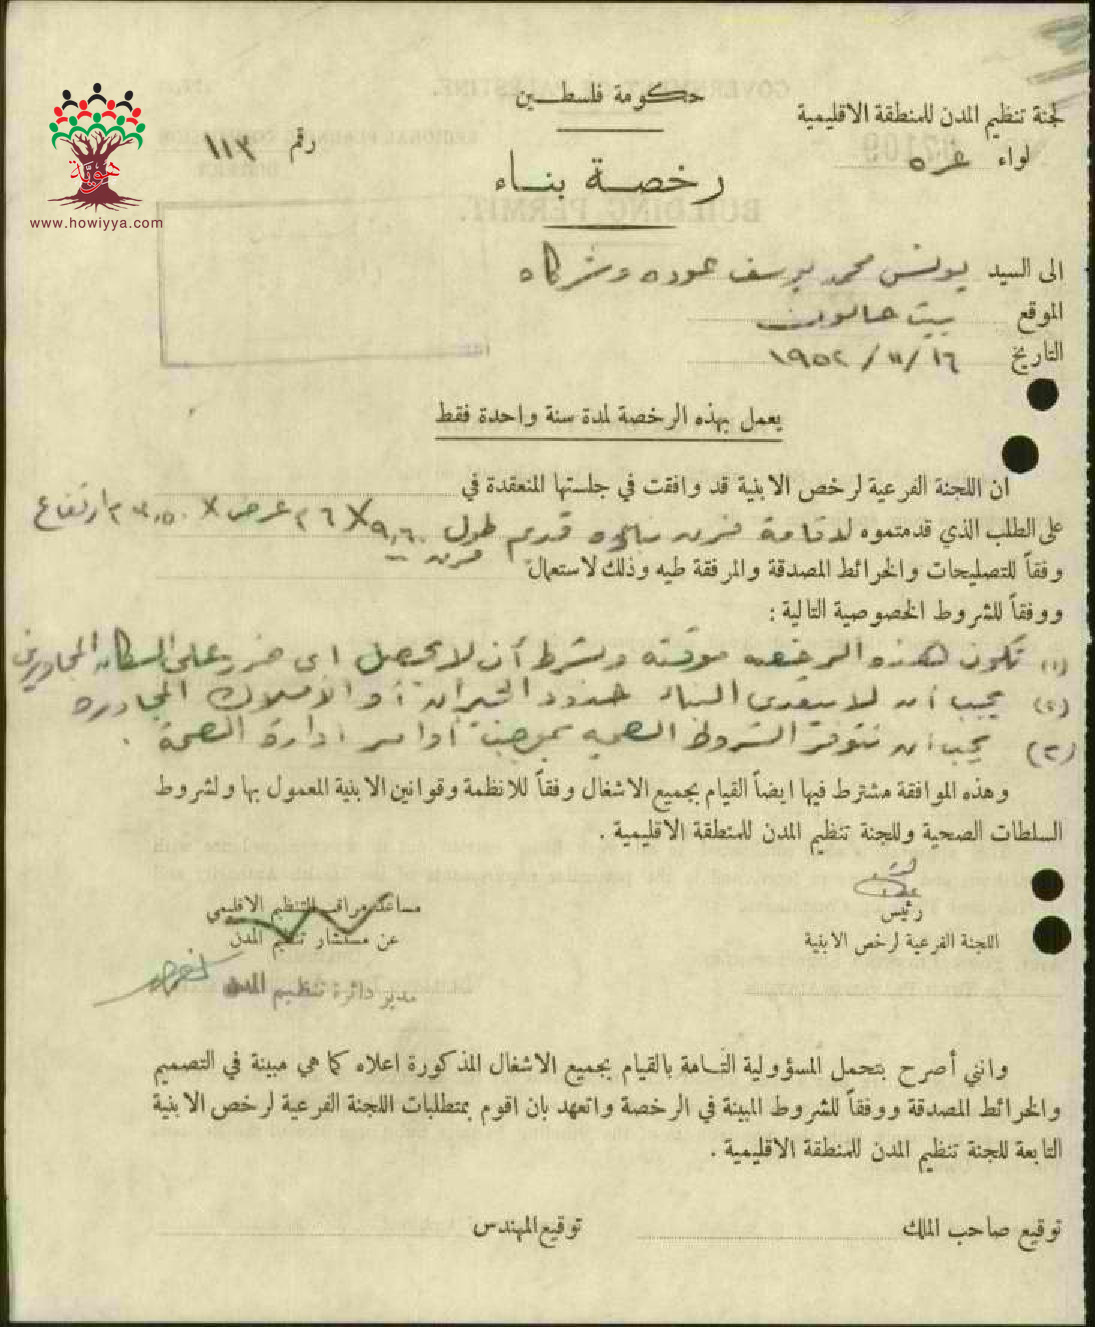 حكومة فلسطين
لجنة تنظيم المدن للمنطقة الاقليمية
لواء غزه
رقم ١١٣
رخصة بناء
هوية
www.howiyya.com
الى السيد يونس محمد يوسف عوده وشركاه
الموقع بيت حانون
التاريخ ١٦/١١/١٩٥٢
يعمل بهذه الرخصة لمدة سنة واحدة فقط
ان اللجنة الفرعية لرخص الابنية قد وافقت في جلستها المنعقدة في
على الطلب الذي قدمتموه لاقامة فرن قديم طول ٩,٦٠ X ٢٦ عرض X ٣,٥٠ ارتفاع
وفقاً للتصليحات والخرائط المصدقة والمرفقة طيه وذلك لاستعمال فرن
ووفقاً للشروط الخصوصية التالية :
(١) تكون هذه الرخصه موقته وبشرط أن لا يحصل اى ضرر على السكان المجاورين
(٢) يجب أن لا يتعدى البناء حدود الجيران أو الأملاك المجاوره
(٣) يجب أن تتوفر الشروط الصحيه بموجب أوامر ادارة الصحة .
وهذه الموافقة مشترط فيها ايضاً القيام بجميع الاشغال وفقاً للانظمة وقوانين الابنية المعمول بها ولشروط
السلطات الصحية وللجنة تنظيم المدن للمنطقة الاقليمية .
رئيس
اللجنة الفرعية لرخص الابنية
مساعد مراقب التنظيم الاقليمي
عن مستشار تنظيم المدن
مدير دائرة تنظيم المدن
وانني أصرح بتحمل المسؤولية التامة بالقيام بجميع الاشغال المذكورة اعلاه كما هي مبينة في التصميم
والخرائط المصدقة ووفقاً للشروط المبينة في الرخصة واتعهد بان اقوم بمتطلبات اللجنة الفرعية لرخص الابنية
التابعة للجنة تنظيم المدن للمنطقة الاقليمية .
توقيع صاحب الملك
توقيع المهندس